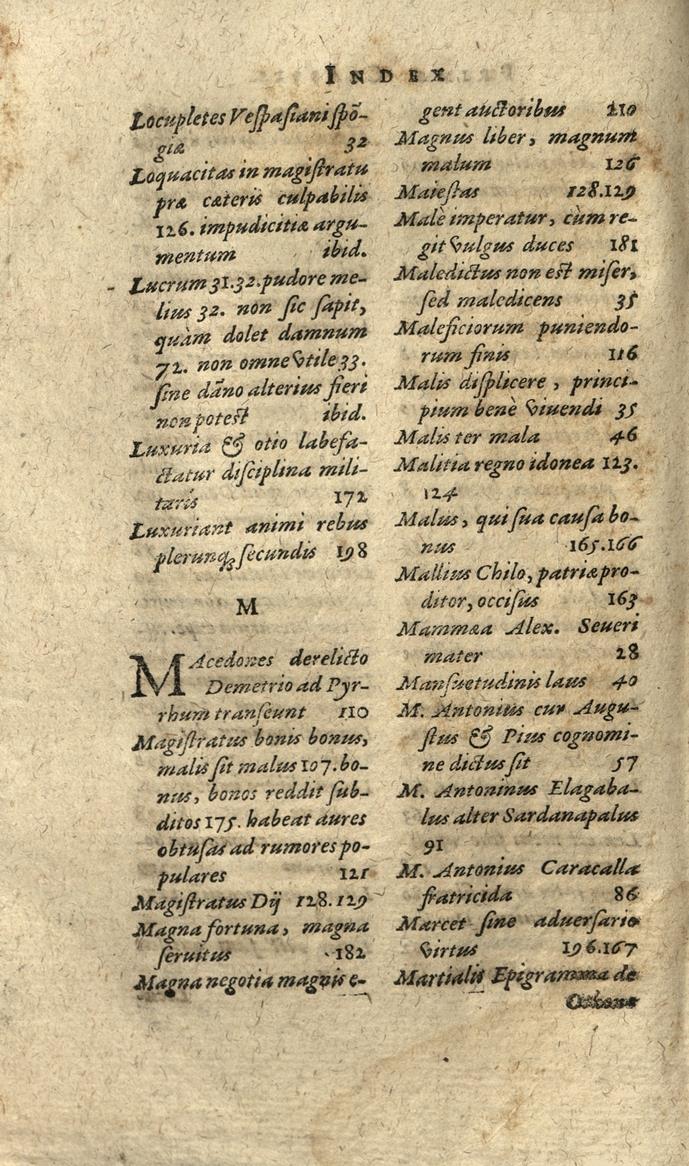 INDEX
Locupletes Veſpaſiani ſpõ-
giæ 32
Loquacitas in magiſtratu
præ cæteris culpabilis
126. impudicitiæ argu-
mentum ibid.
Lucrum 31.32. pudore me-
lius 32. non ſic ſapit,
quàm dolet damnum
72. non omne vtile 33.
ſine dãno alterius fieri
non poteſt ibid.
Luxuria & otio labefa-
ctatur diſciplina mili-
taris 172
Luxuriant animi rebus
plerunq; ſecundis 198
M
MAcedones derelicto
Demetrio ad Pyr-
rhum tranſeunt 110
Magiſtratus bonis bonus,
malis ſit malus 107. bo-
nus, bonos reddit ſub-
ditos 175. habeat aures
obtuſas ad rumores po-
pulares 121
Magiſtratus Dij 128.129
Magna fortuna, magna
ſeruitus 182
Magna negotia magnis e-
gent auctoribus 210
Magnus liber, magnum
malum 126
Maieſtas 128.129
Malè imperatur, cùm re-
git vulgus duces 181
Maledictus non eſt miſer,
ſed maledicens 35
Maleficiorum puniendo-
rum finis 116
Malis diſplicere, princi-
pium benè viuendi 35
Malis ter mala 46
Malitia regno idonea 123.
124
Malus, qui ſua cauſa bo-
nus 165.166
Mallius Chilo, patriæ pro-
ditor, occiſus 163
Mammæa Alex. Seueri
mater 28
Manſuetudinis laus 40
M. Antonius cur Augu-
ſtus & Pius cognomi-
ne dictus ſit 57
M. Antoninus Elagaba-
lus alter Sardanapalus
91
M. Antonius Caracalla
fratricida 86
Marcet ſine aduerſario
virtus 196.167
Martialis Epigramma de